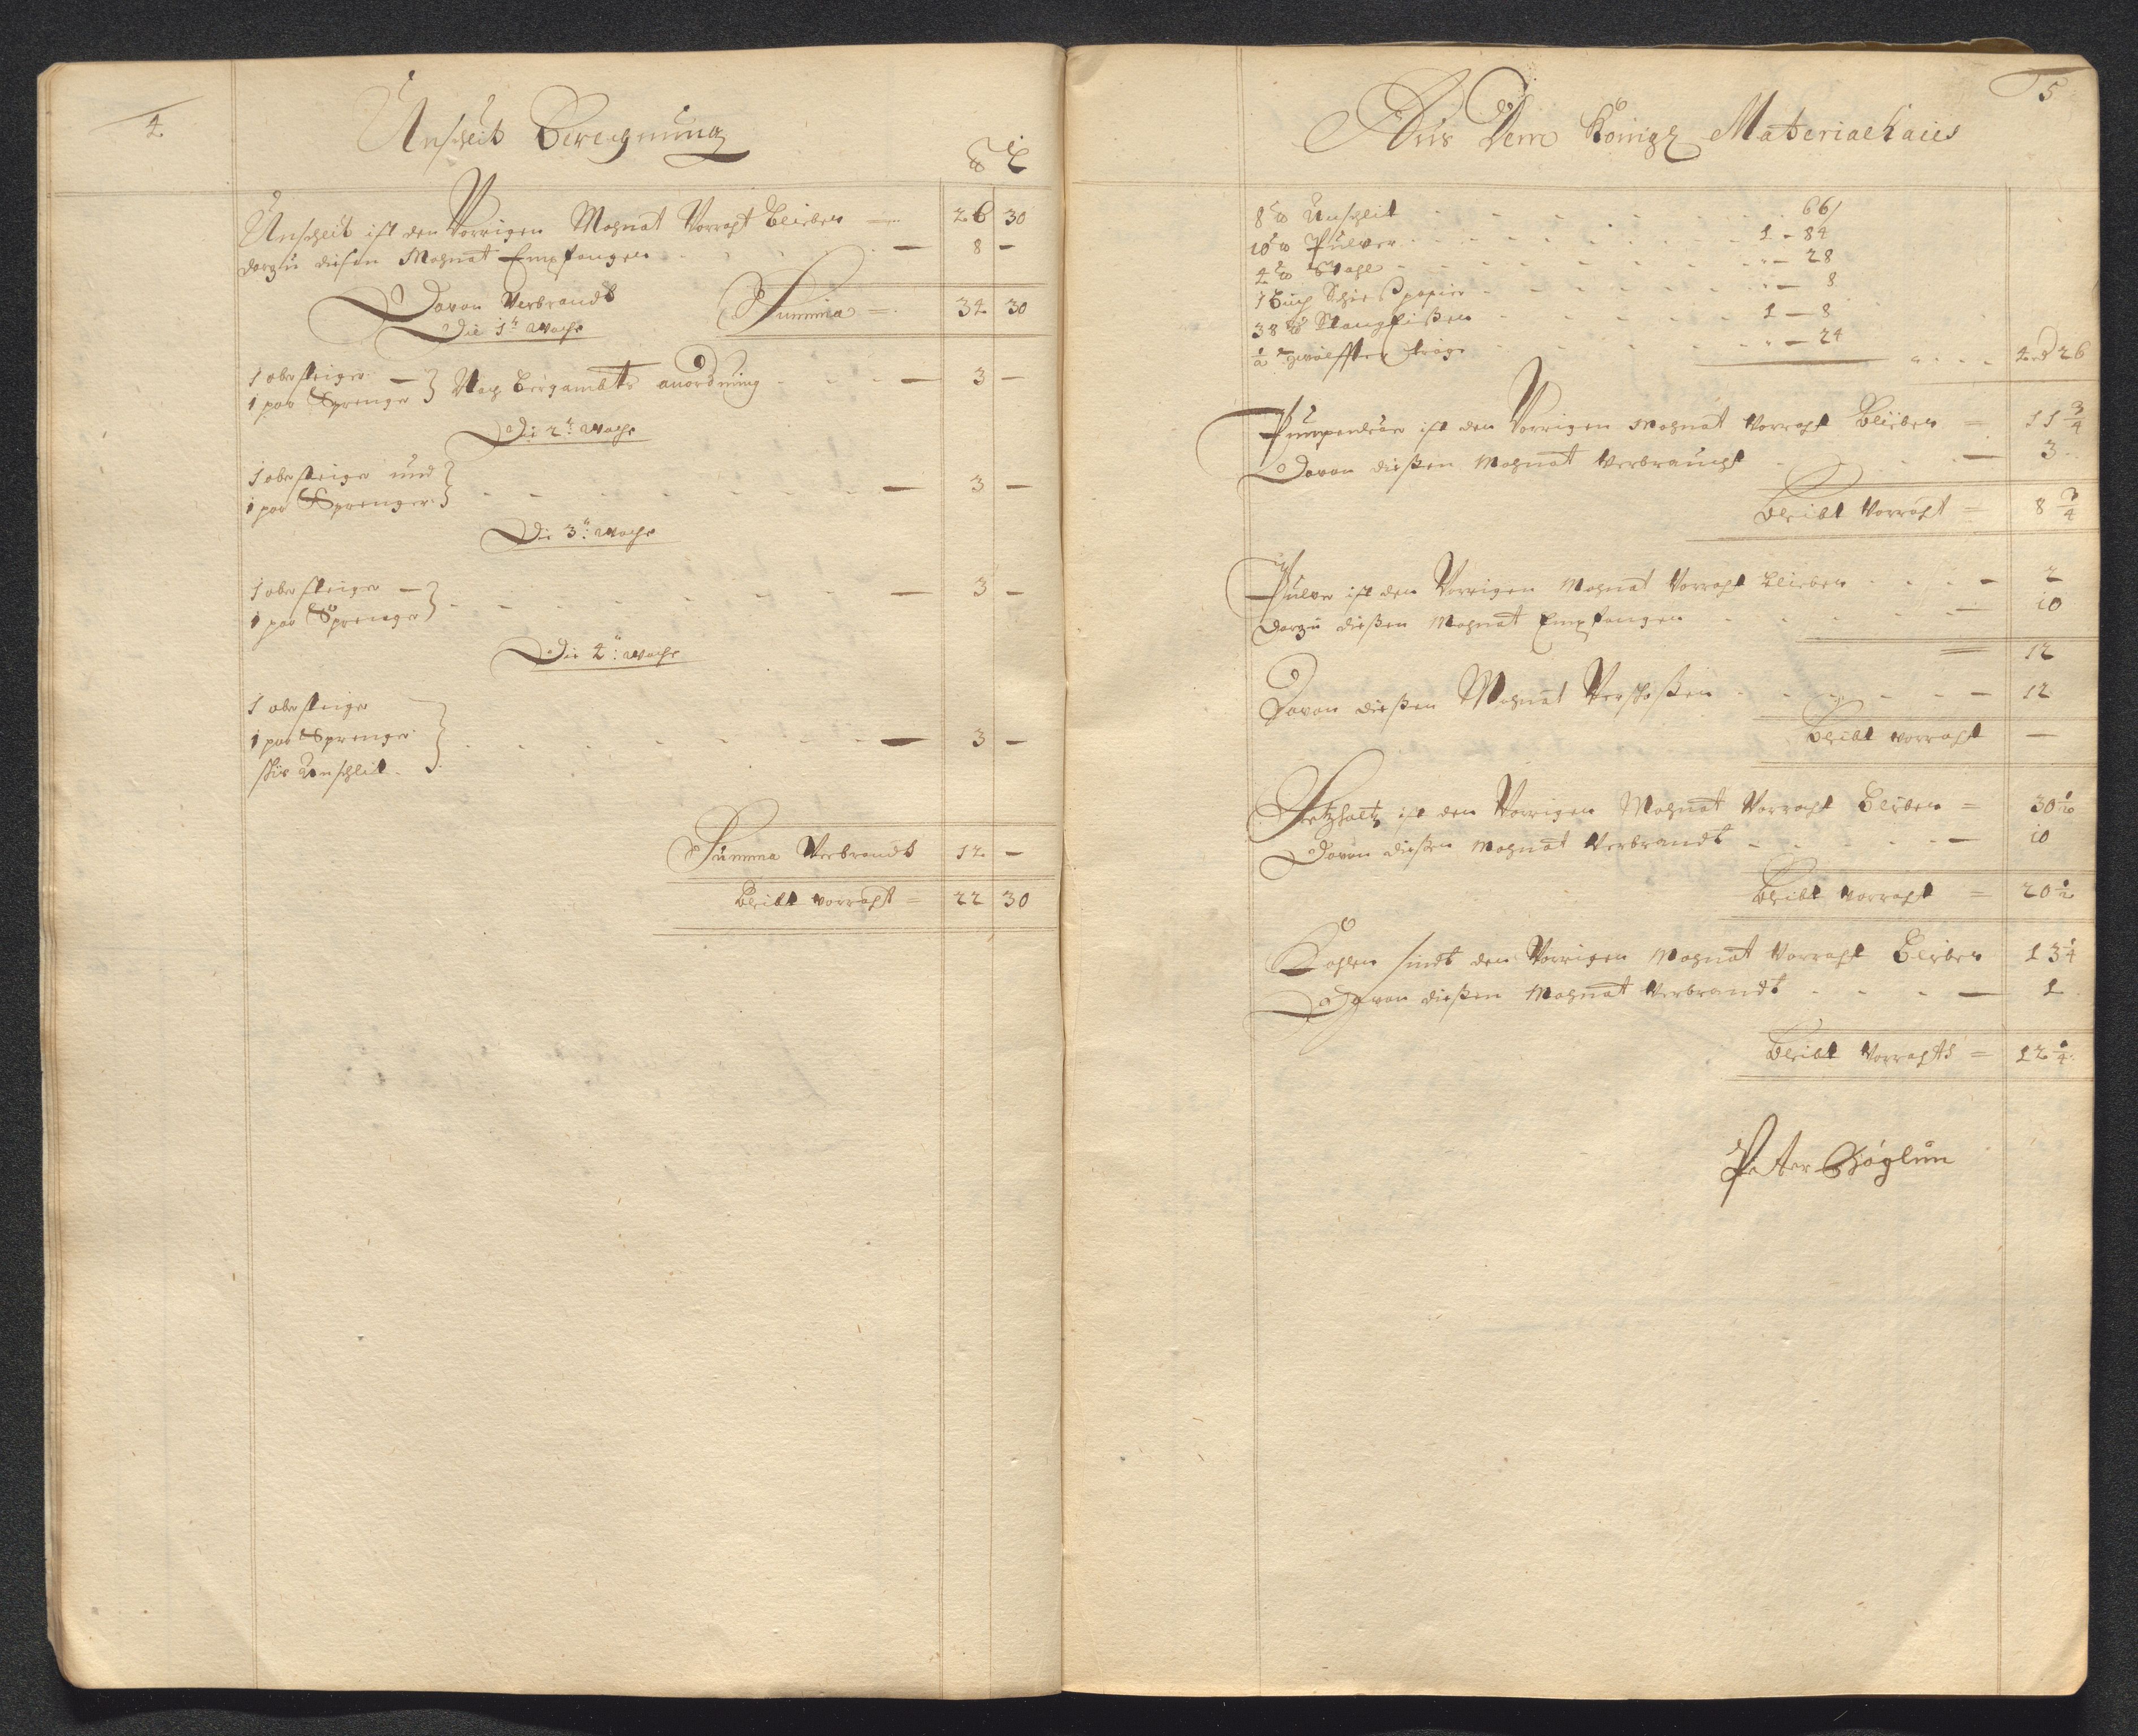 4
Unschlit Berechnung
℔ L
Unschlit ist den Vorrigen Mohnat Vorraht blieben — 26 30
darzu diesen Mohnat Empfangen — 8 —
Summa = 34 30
Davon Verbrandt
Die 1te Woche
1 obersteiger —
1 par Sprenger } Nach bergambts anordnung — 3 —
Die 2te Woche
1 obersteiger und
1 par Sprenger } — 3 —
Die 3te Woche
1 obersteiger —
1 par Sprenger } — 3 —
Die 4te Woche
1 obersteiger
1 par Sprenger } — 3 —
Unschlit
Summa Verbrandt 12 —
bleibt vorraht = 22 30
5
Aus Dem Königl Materialhaus
8 ℔ Unschlit 66
10 ℔ Pulver 1 – 84
4 ℔ Stahl – 28
1 Buch Schießpapier – 8
38 ℔ 1 – 8
½ zwölffter tröge – 24
4 26
Pumpenleder ist den Vorrigen Mohnat Vorraht blieben = 11 ¾
Davon dießen Mohnat Verbraucht — 3
bleibt Vorraht = 8 ¾
Pulver ist den Vorrigen Mohnat Vorraht blieben — 2
darzu dießen Mohnat Empfangen — 10
= 12
Davon dießen Mohnat Verschoßen — 12
bleibt vorraht —
Setzholtz ist den Vorrigen Mohnat Vorraht blieben = 30 ½
Davon dießen Mohnat Verbrandt — 10
bleibt vorraht = 20 ½
Kohlen sindt den Vorrigen Mohnat Vorraht blieben 13 ¼
Davon dießen Mohnat Verbrandt — 1
bleibt Vorrahts = 12 ¼
Peter